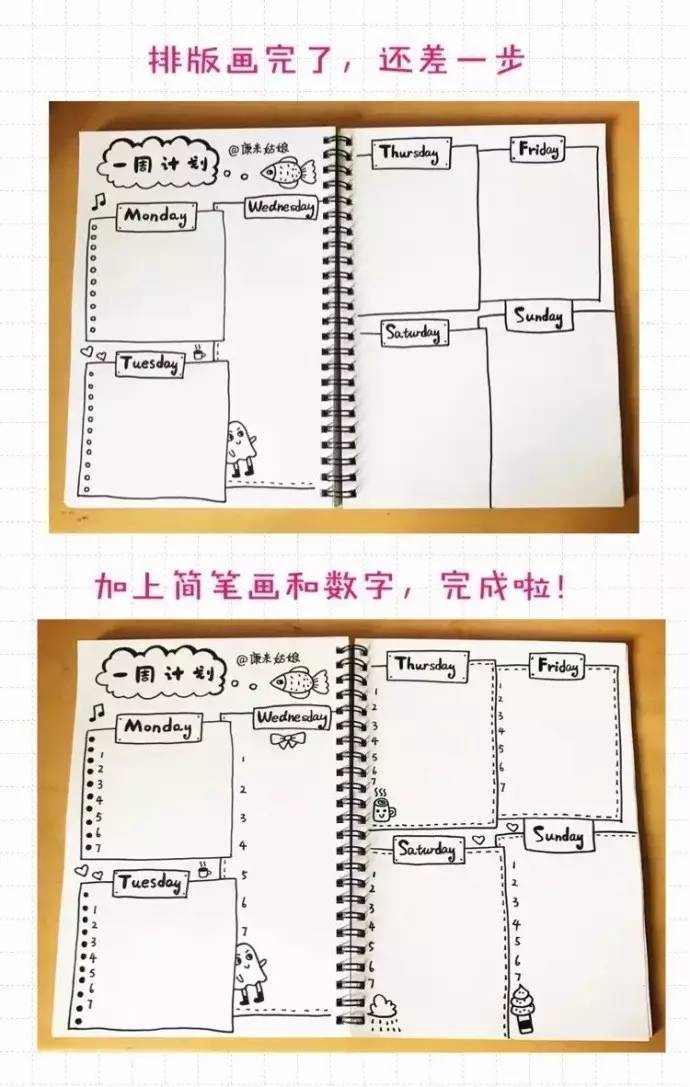 排版画完了，还差一步
一周计划
@康未姑娘
Monday
Wednesday
Tuesday
Thursday
Friday
Saturday
Sunday
加上简笔画和数字，完成啦！
一周计划
@康未姑娘
Monday
1
2
3
4
5
6
7
Tuesday
1
2
3
4
5
6
7
Wednesday
1
2
3
4
5
6
7
Thursday
1
2
3
4
5
6
7
Friday
1
2
3
4
5
6
7
Saturday
1
2
3
4
5
6
7
Sunday
1
2
3
4
5
6
7